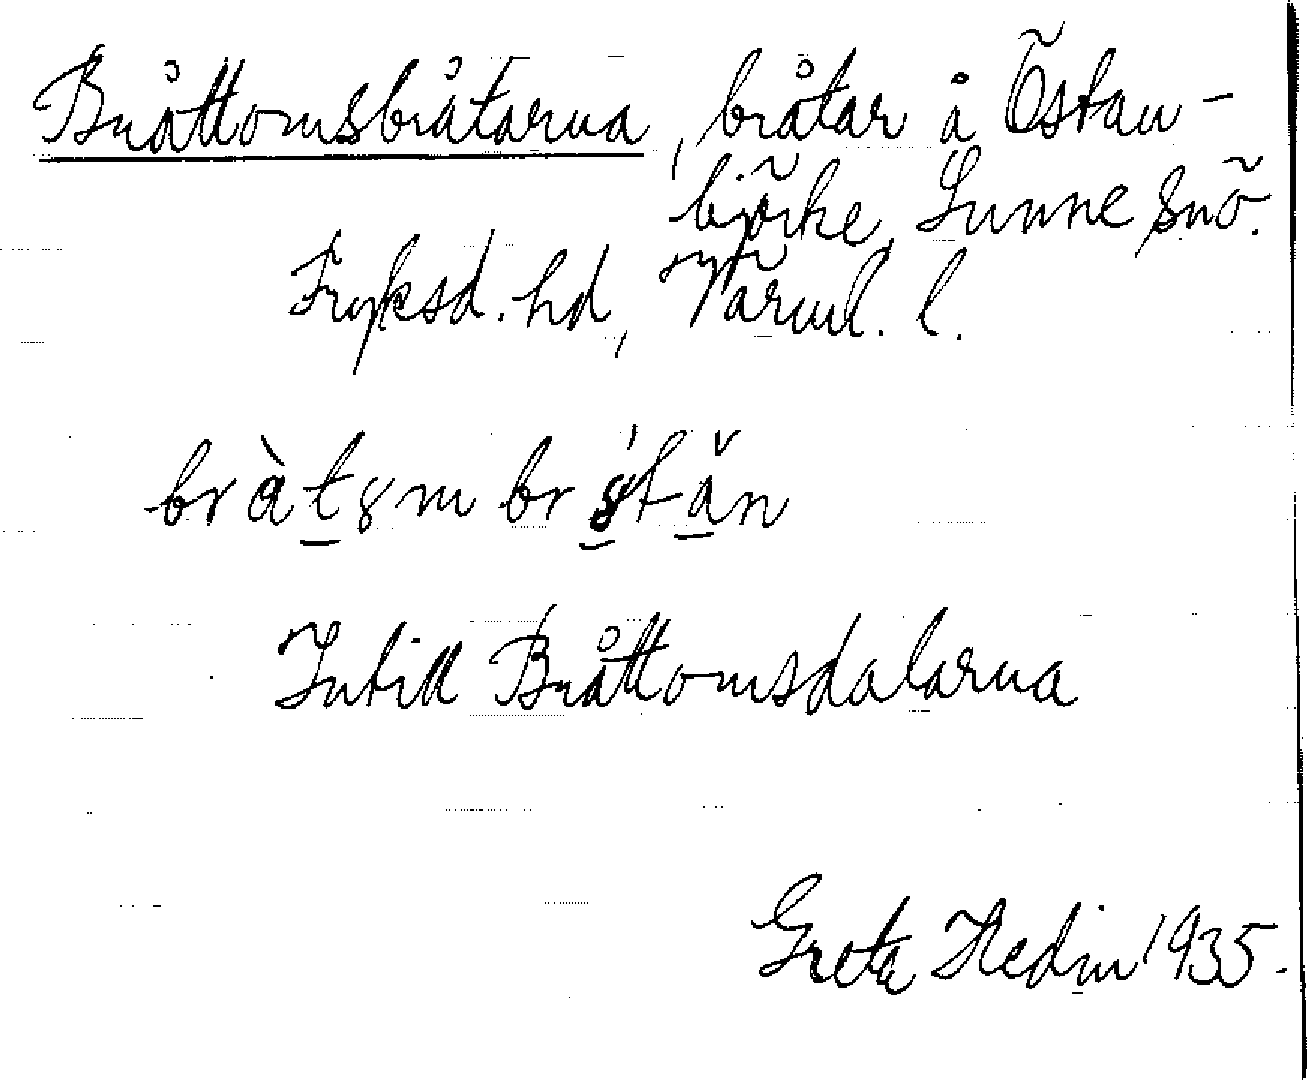 Bråttomsbråtarna, bråtar å Östan-
björke, Sunne snö.
Fryksd. hd, Värml. l.
bråtar
Intill Bråttomsdalarna
Greta Hedin 1935.